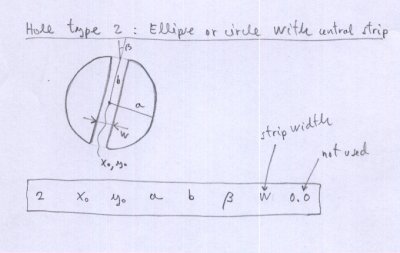 Hole type 2 : Ellipse or circle with central strip
β
b
a
w
x₀, y₀
strip width
not used
2 x₀ y₀ a b β w 0.0